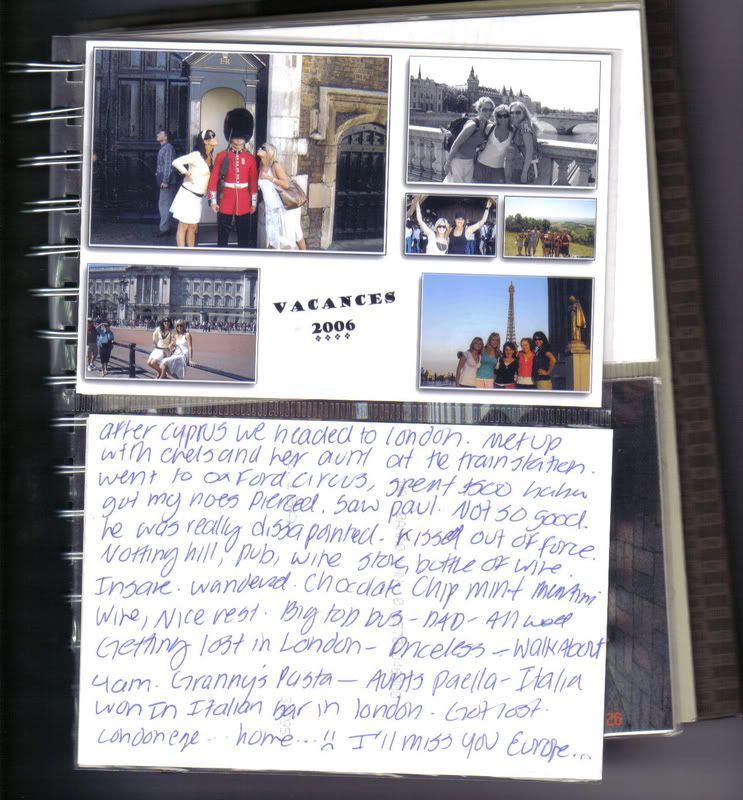 VACANCES
2006
after cyprus we headed to london. met up
with chels and her aunt at te trainstation.
went to oxford circus, spent $500 haha
got my noes pierced. saw paul. Not so good.
he was really dissapointed. Kissed out of force.
Notting hill, pub, wine store, bottle of wine.
Insane. wandered. Chocolate Chip mint
wine, Nice rest. Big top bus - DAD - All week
Getting lost in London - Priceless - WALKABOUT
4am. Granny's Pasta - Aunts paella - Italia
won In Italian bar in london. Got lost.
London eye ... home ...!! I'll miss you Europe...
26